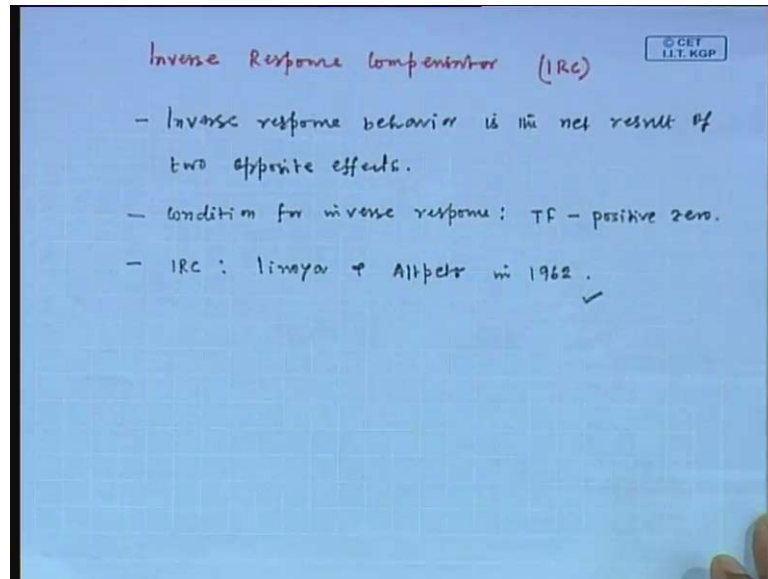 Inverse Response Compensator (IRC)
© CET
I.I.T. KGP
- Inverse response behavior is the net result of
two opposite effects.
- Condition for inverse response: TF - positive zero.
- IRC : Iinoya & Altpeter in 1962.